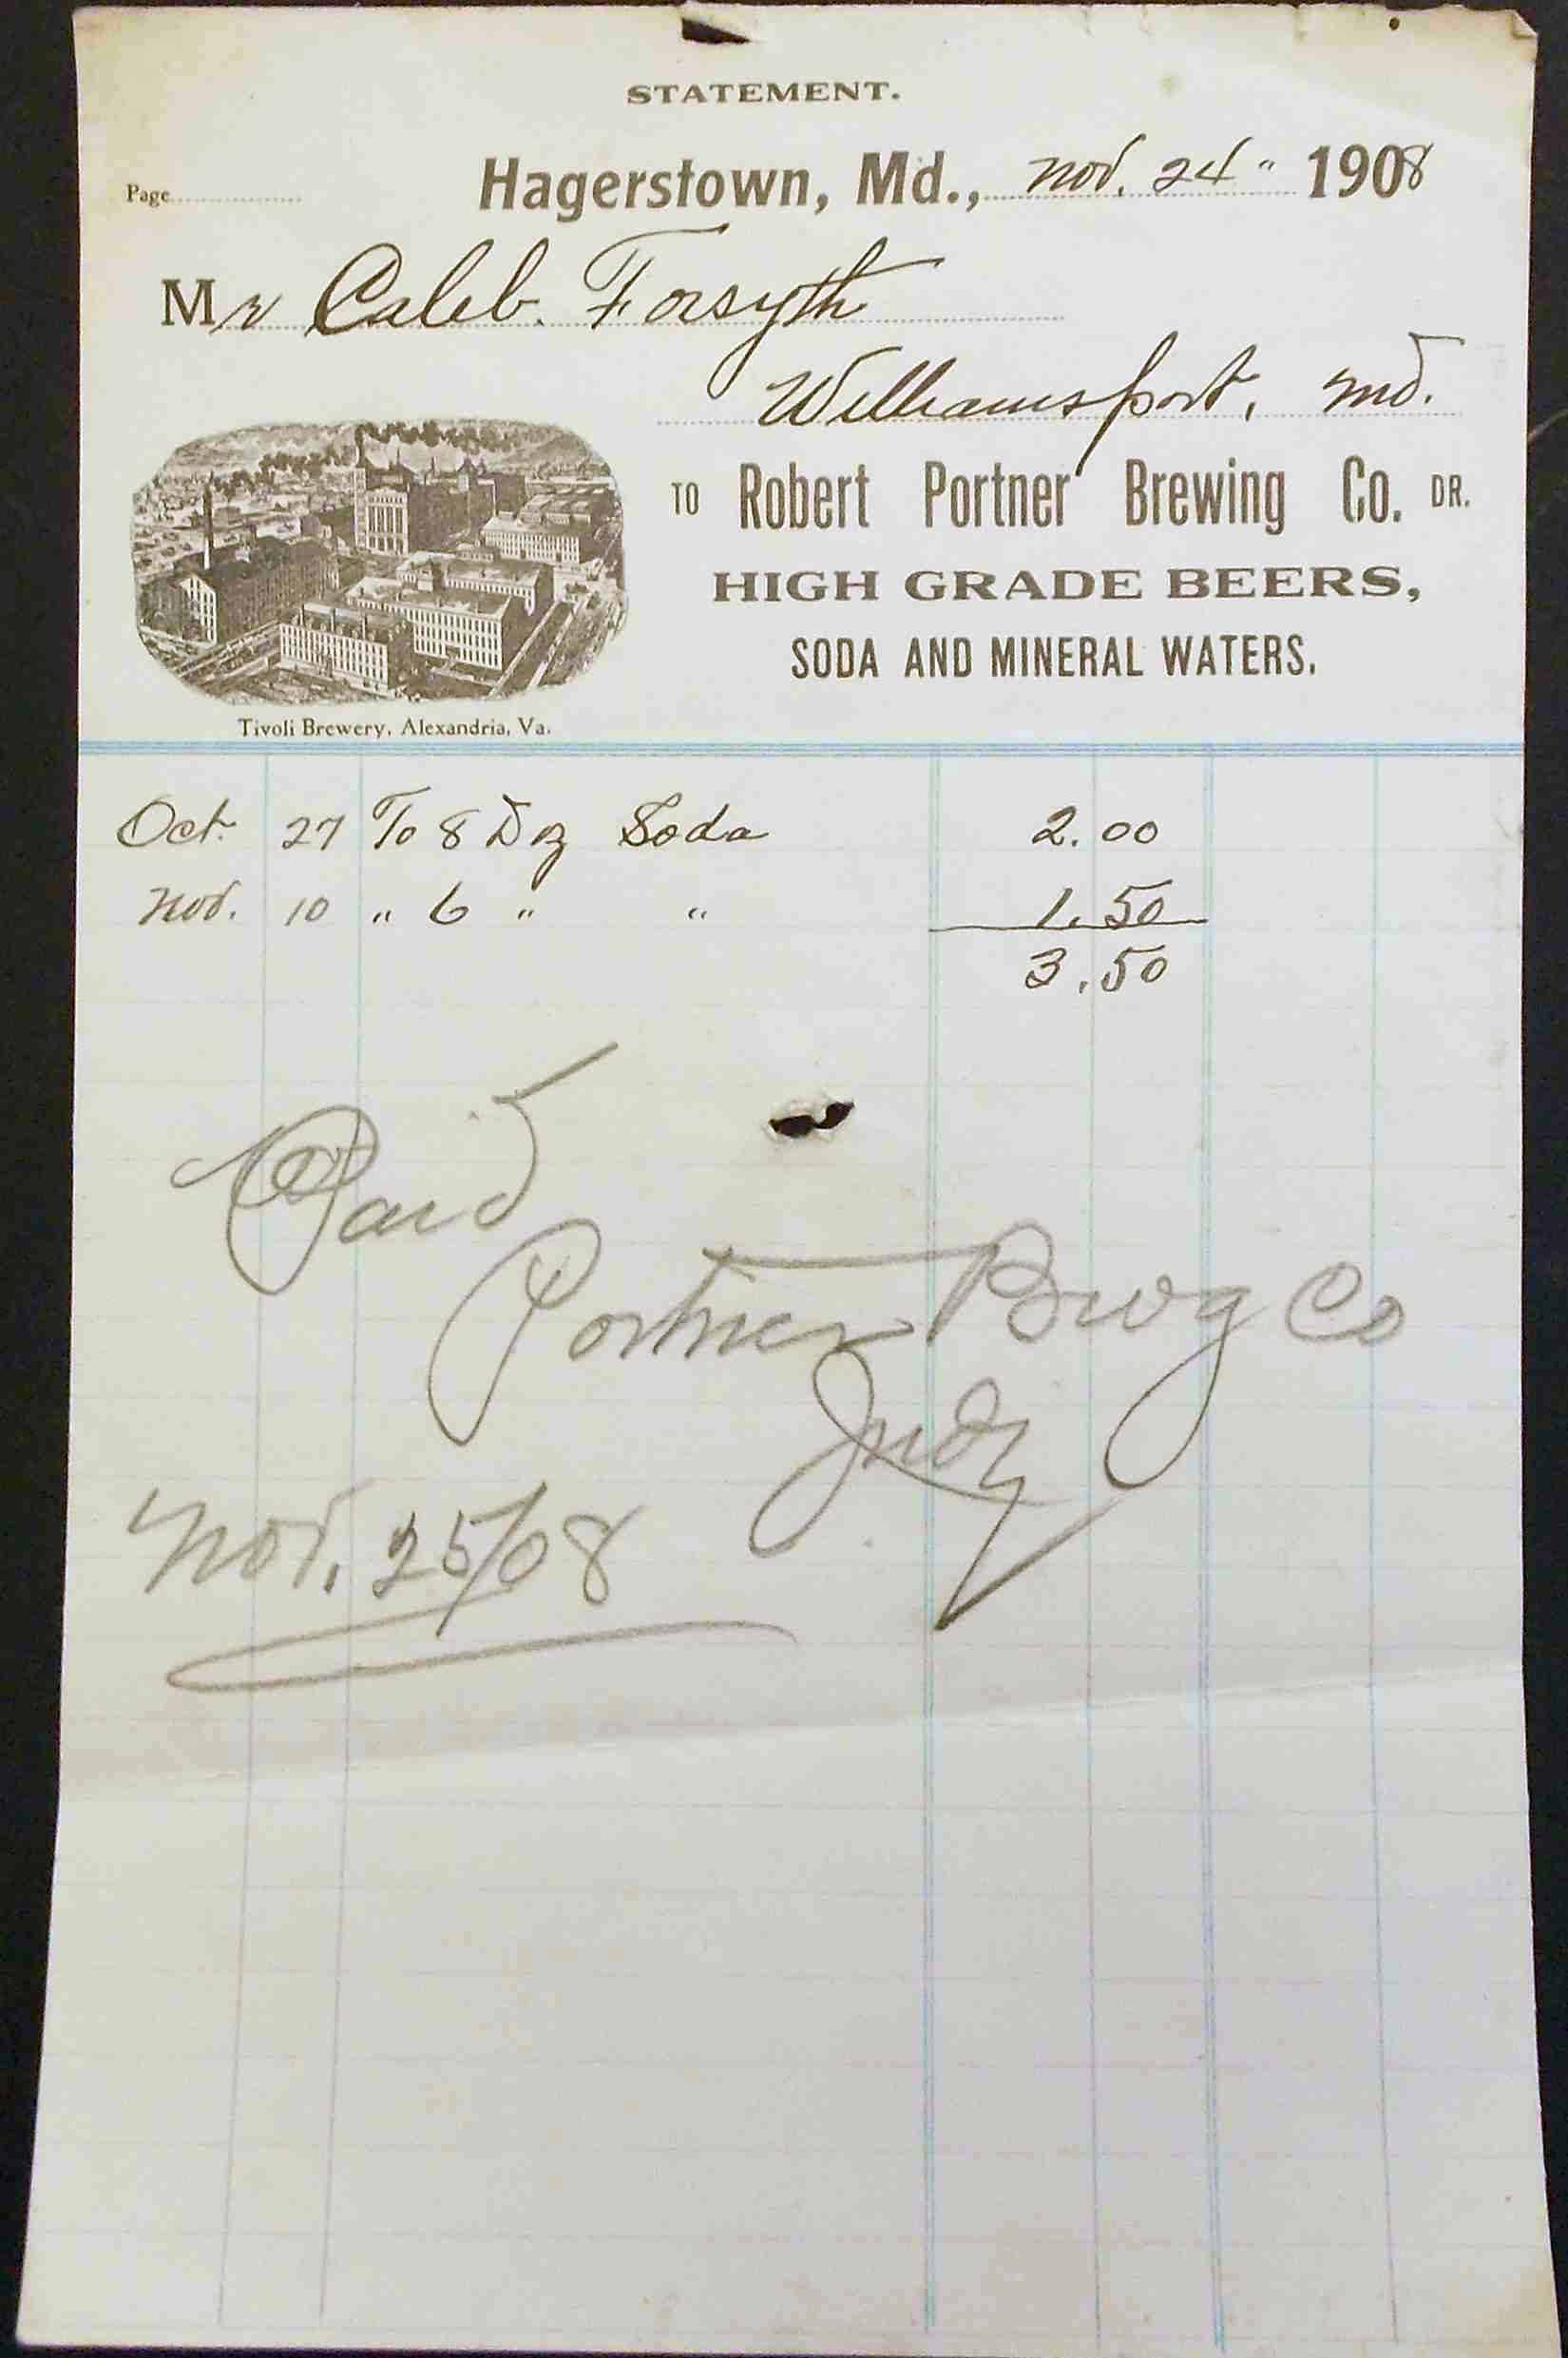 STATEMENT.
Page
Hagerstown, Md., Nov. 24" 1908
Mr Caleb. Forsyth
Williamsport, Md.
TO Robert Portner Brewing Co. DR.
HIGH GRADE BEERS,
SODA AND MINERAL WATERS.
Tivoli Brewery, Alexandria, Va.
Oct. 27 To 8 Doz Soda 2.00
Nov. 10 " 6 " " 1.50
3.50
Paid
Portner Brwg Co
Judy
Nov. 25/08